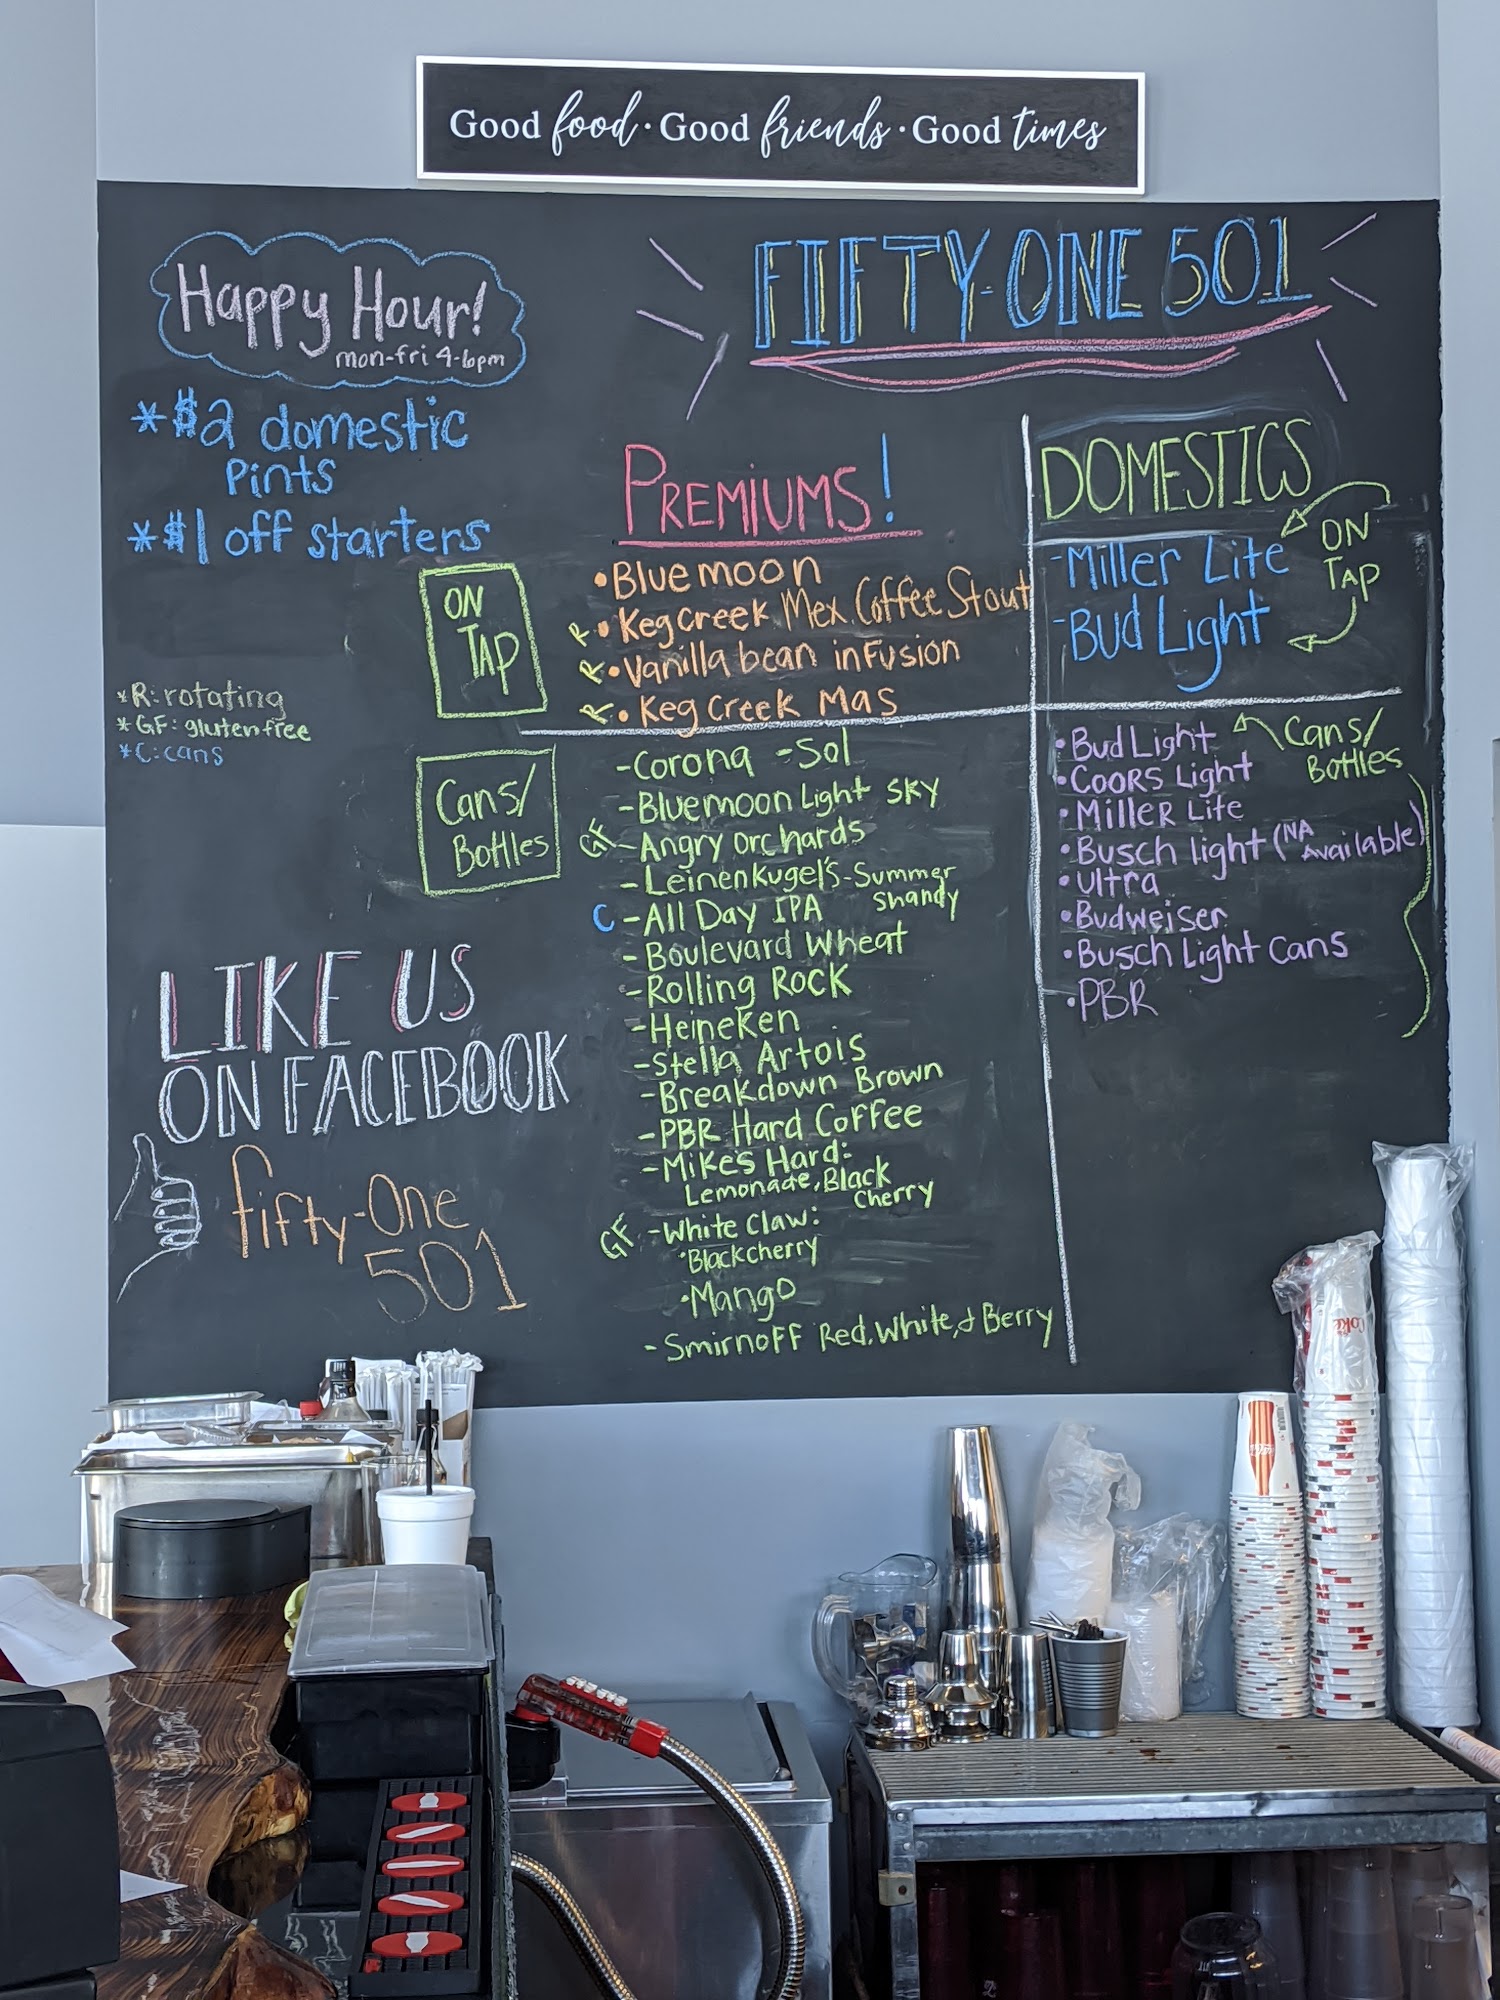 Good food · Good friends · Good times
Happy Hour!
mon-fri 4-6pm
*$2 domestic
Pints
*$1 off starters
FIFTY-ONE 501
PREMIUMS!
ON
TAP
• Blue moon
R • Keg Creek Mex. Coffee Stout
R • Vanilla bean infusion
R • Keg Creek Mas
*R: rotating
*GF: gluten free
*C: cans
Cans/
Bottles
- Corona - Sol
- Bluemoon Light SKY
GF - Angry Orchards
- Leinenkugel's - Summer
Shandy
C - All Day IPA
- Boulevard Wheat
- Rolling Rock
- Heineken
- Stella Artois
- Breakdown Brown
- PBR Hard Coffee
- Mike's Hard:
Lemonade, Black
Cherry
GF - White Claw:
• Blackcherry
• Mango
- Smirnoff Red, White, & Berry
DOMESTICS
ON
TAP
- Miller Lite
- Bud Light
Cans/
Bottles
• Bud Light
• Coors Light
• Miller Lite
• Busch light (NA
Available)
• Ultra
• Budweiser
• Busch Light Cans
• PBR
LIKE US
ON FACEBOOK
fifty-One
501
Coke